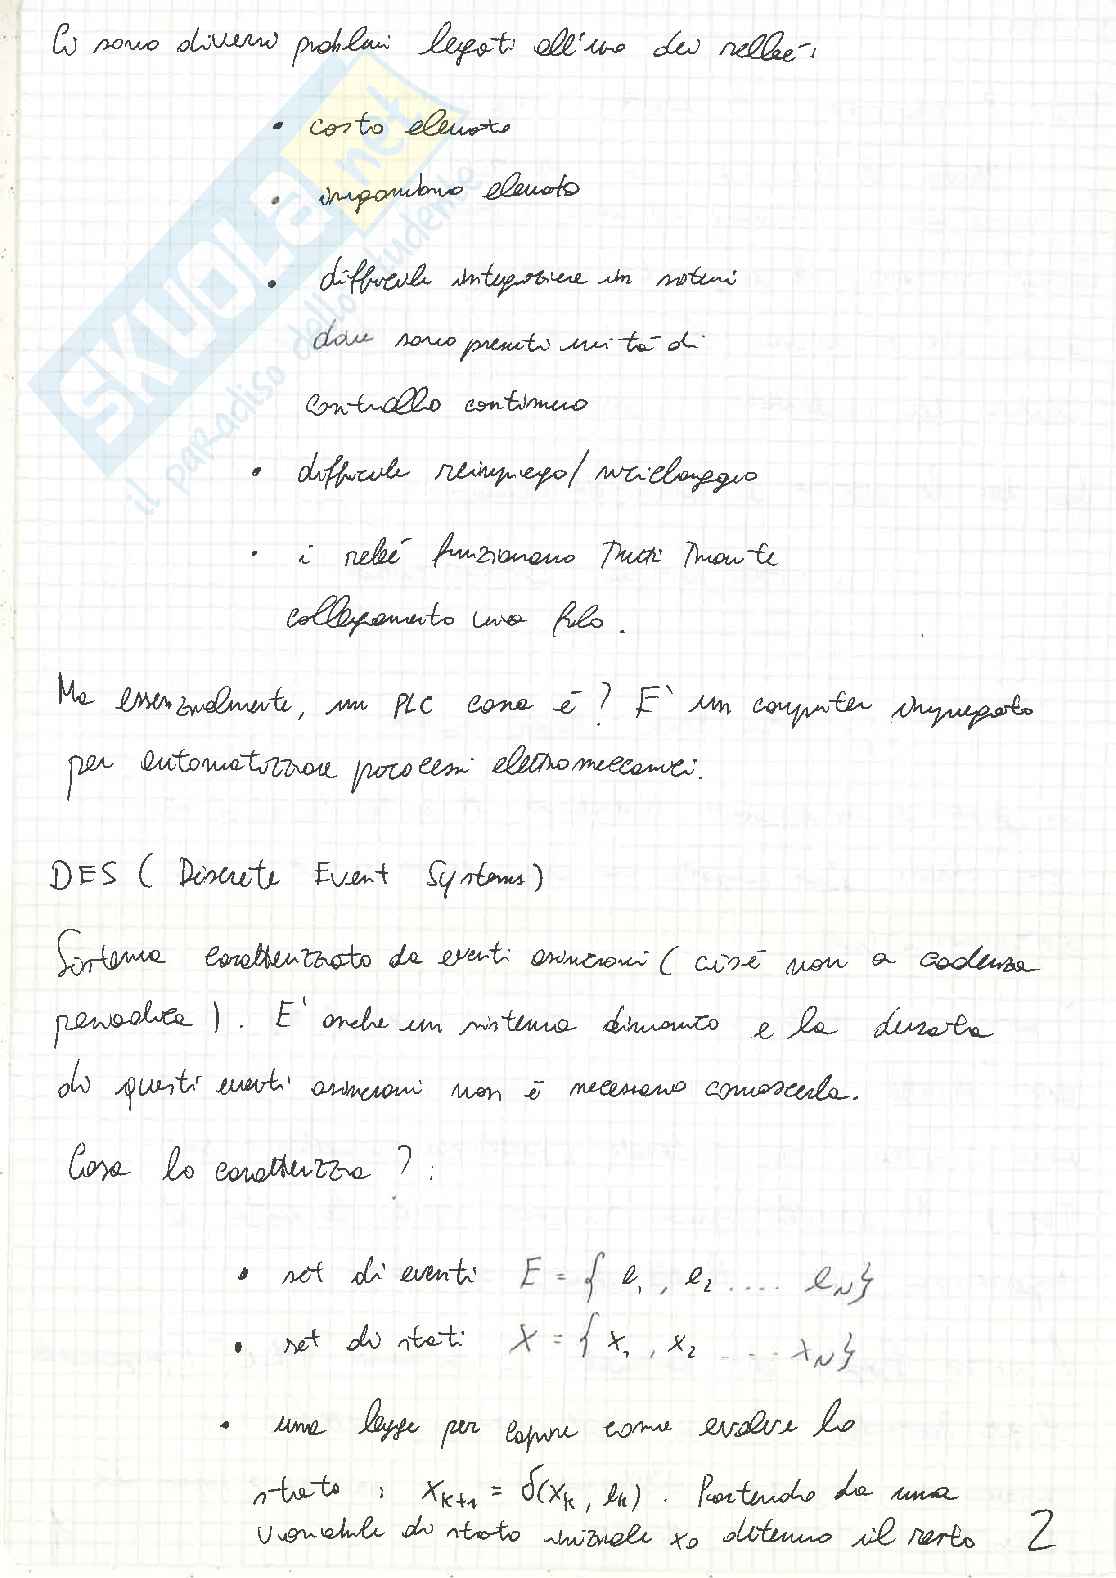 Ci sono diversi problemi legati all'uso dei relleé:
• costo elevato
• ingombro elevato
• difficile integrazione in sistemi
dove sono presenti unità di
controllo continuo
• difficile reimpiego/riciclaggio
• i releé funzionano Tutti Tramite
collegamento via filo.
Ma essenzialmente, un PLC cosa è? E' un computer impiegato
per automatizzare processi elettromeccanici.
DES ( Discrete Event Systems)
Sistema caratterizzato da eventi asincroni ( cioè non a cadenza
periodica ). E' anche un sistema dinamico e la durata
di questi eventi asincroni non è necessario conoscerla.
Cosa lo caratterizza ? :
• set di eventi E = { e1 , e2 .... eN}
• set di stati X = { x1 , x2 .... xN}
• una legge per capire come evolve lo
stato : xk+1 = δ(xk , ek) . Partendo da una
variabile di stato iniziale x0 ottengo il resto
2
SKUOLA.net
il paradiso dello studente